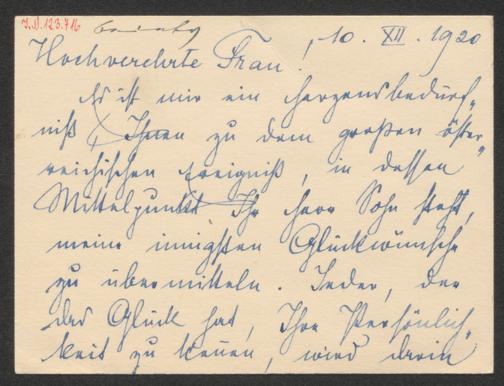 I.N. 123.716
10. XII. 1920
Hochverehrte Frau!
Es ist mir ein Herzensbedürf-
niß Ihnen zu dem großen öster-
reichischen Ereigniß, in dessen
Mittelpunkt Ihr Herr Sohn steht,
meine innigsten Glückwünsche
zu übermitteln. Jeder, der
das Glück hat, Ihre Persönlich-
keit zu kennen, wird darin